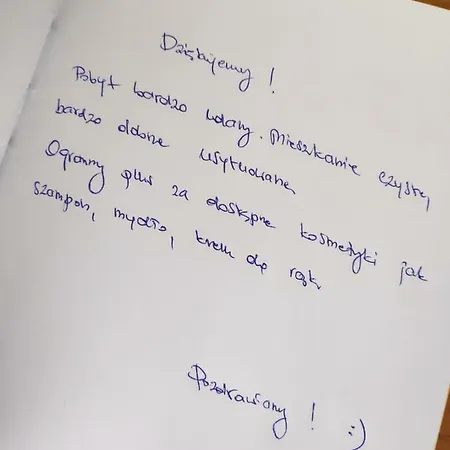 Dziękujemy !
Pobyt bardzo udany. Mieszkanie czyste,
bardzo dobrze usytuowane
Ogromny plus za dostępne kosmetyki jak
szampon, mydło, krem do rąk
Pozdrawiamy ! :)